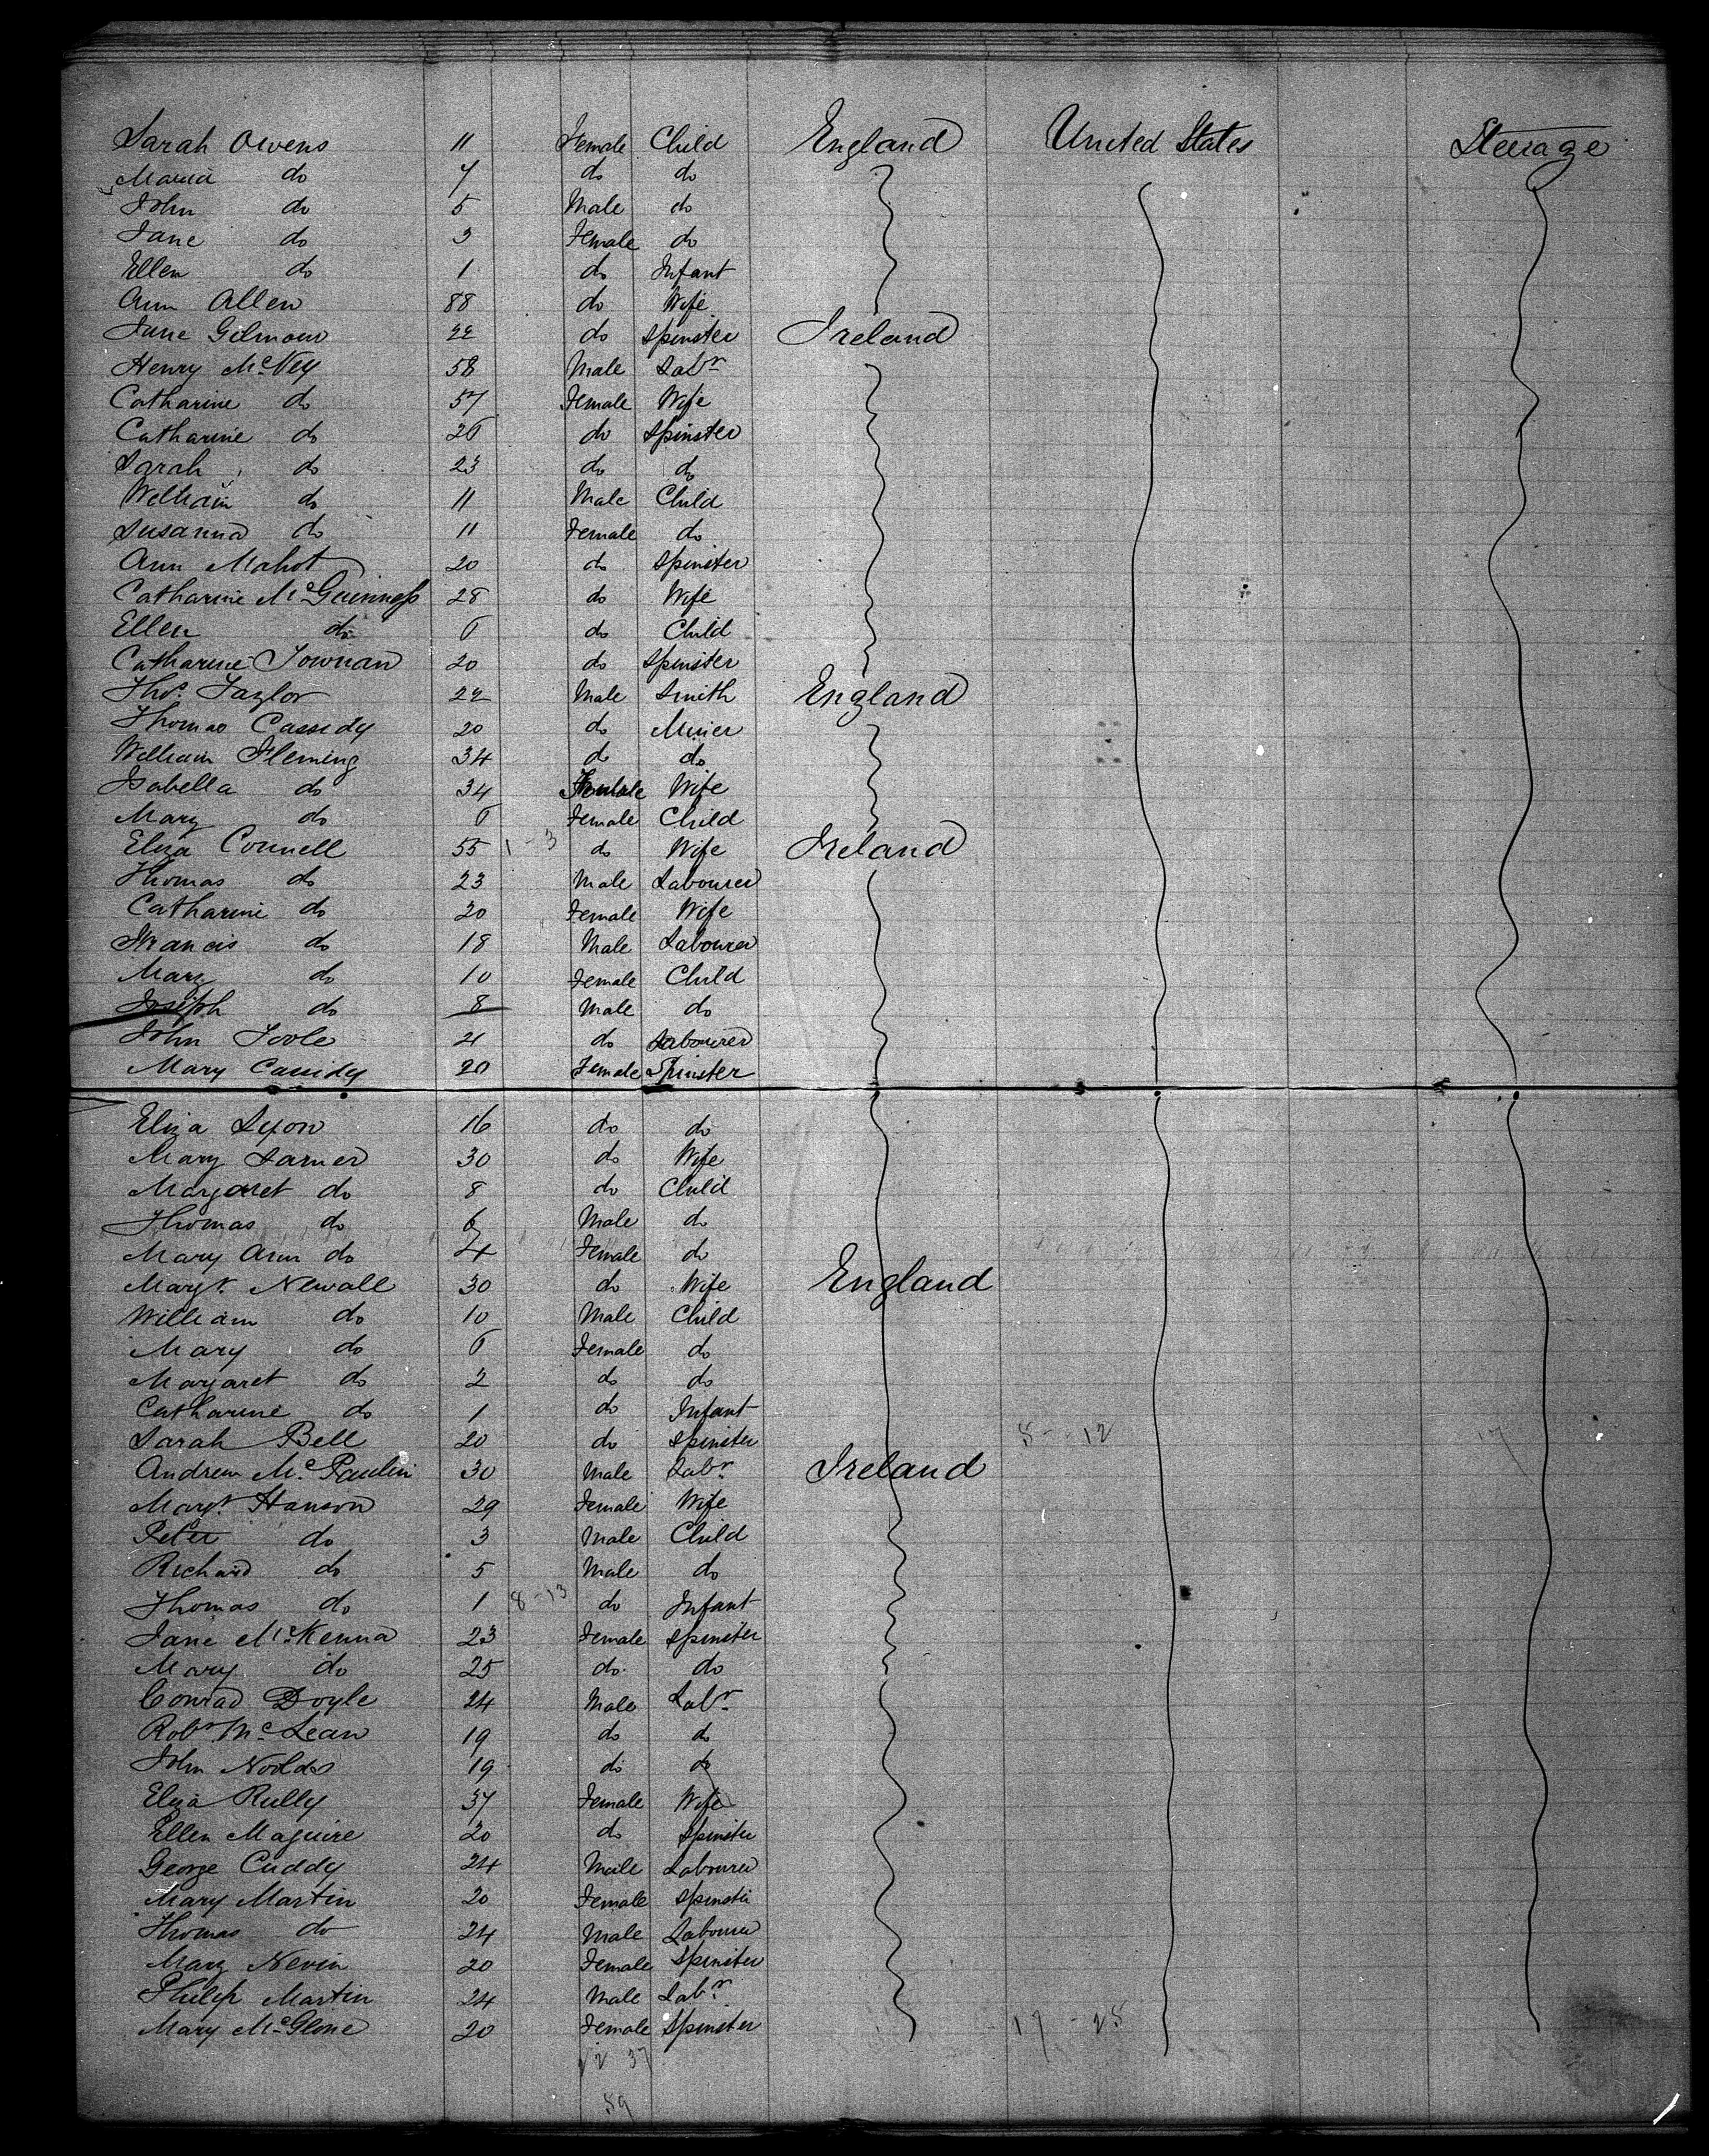 Sarah Owens 11 Female Child England United States Steerage
Maria do 7 do do
John do 5 Male do
Jane do 3 Female do
Ellen do 1 do Infant
Ann Allen 88 do Wife
Jane Gilmour 22 do Spinster Ireland
Henry McVey 58 Male Labr
Catharine do 57 Female Wife
Catharine do 26 do Spinster
Sarah do 23 do do
William do 11 Male Child
Susanna do 11 Female do
Ann Mahot 20 do Spinster
Catharine McGuinness 28 do Wife
Ellen do 6 do Child
Catharine 20 do Spinster
Thos. Taylor 22 Male Smith England
Thomas Cassidy 20 do Miner
William Fleming 34 do do
Isabella do 34 Female Wife
Mary do 6 Female Child
Eliza Connell 55 1-3 do Wife Ireland
Thomas do 23 Male Labourer
Catharine do 20 Female Wife
Francis do 18 Male Labourer
Mary do 10 Female Child
Joseph do 8 Male do
John Toole 21 do Labourer
Mary Cassidy 20 Female Spinster
Eliza 16 do do
Mary Larner 30 do Wife
Margaret do 8 do Child
Thomas do 6 Male do
Mary Ann do 4 Female do
Margt. Newall 30 do Wife England
William do 10 Male Child
Mary do 6 Female do
Margaret do 2 do do
Catharine do 1 do Infant
Sarah Bell 20 do Spinster 8-12 17
Andrew Mc 30 Male Labr Ireland
Margt. Hanson 29 Female Wife
Peter do 3 Male Child
Richard do 5 Male do
Thomas do 1 8-13 do Infant
Jane McKenna 23 Female Spinster
Mary do 25 do do
Conrad Doyle 24 Male Labr
Robt McLean 19 do do
John 19 do do
Eliza Rully 37 Female Wife
Ellen Maguire 20 do Spinster
George Cuddy 24 Male Labourer
Mary Martin 20 Female Spinster
Thomas do 24 Male Labourer
Mary Nevin 20 Female Spinster
Philip Martin 24 Male Labr
Mary McGlone 20 Female Spinster 17-25
22 37
59